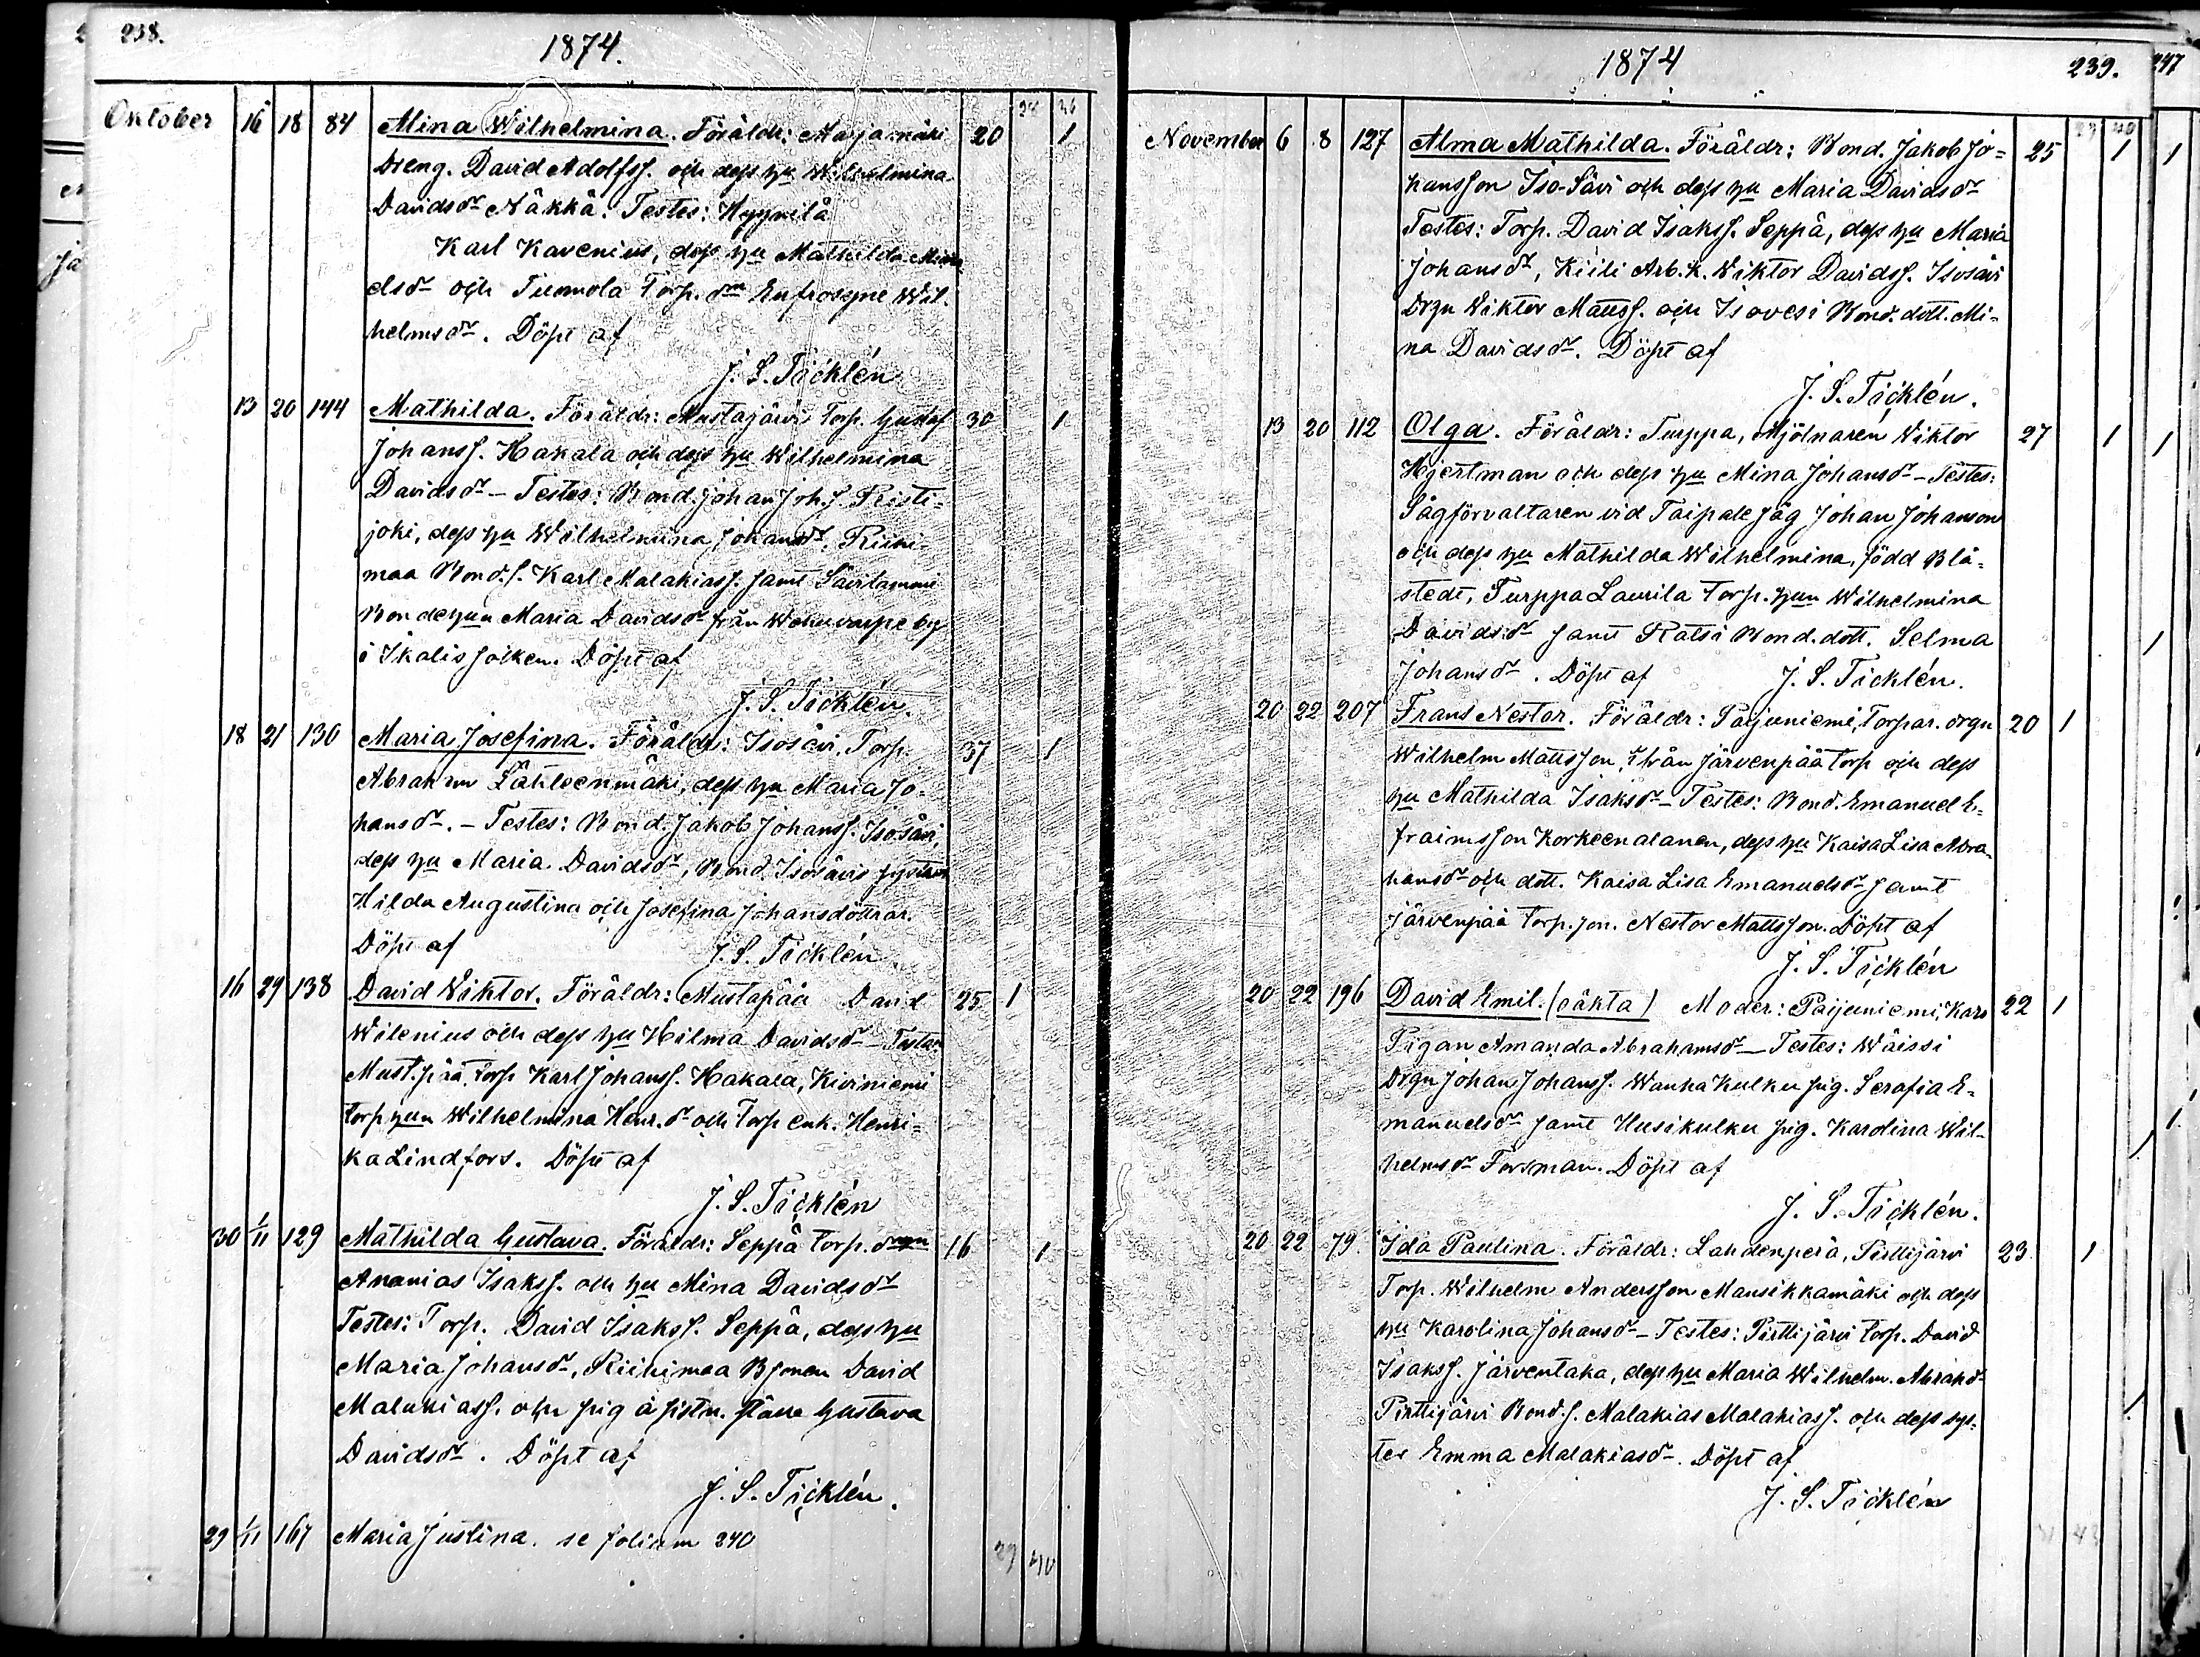 238.
1874.
28 36
Oktober 16 18 84 Mina Wilhelmina. Föräldr: Marjamäki 20 1
Dreng. David Adolfss. och dess hu Wilhelmina
Davidsdr Näkkä. Testes: Hyynilä
Karl Kavenius, dess hu Mathilda
dsdr och Tuomola Torp. drn Eufrosyne Wil-
helmsdr. Döpt af
J. S. Ticklén
13 20 144 Mathilda. Föräldr: Mustajärvi Torp. Gustaf 30 1
Johanss. Hakala och dess hu Wilhelmina
Davidsdr - Testes: Bond. Johan Joh.s. Risti-
joki, dess hu Wilhelmina Johansdr, Riihi-
maa Bond.s. Karl Malakiass. samt Savilammi
Bondehun Maria Davidsdr från by
i Ikalis socken. Döpt af
J. S. Ticklén.
18 21 130 Maria Josefina. Föräldr: Isosävi, Torp. 37 1
Abraham Lähteenmäki, dess hu Maria Jo-
hansdr. - Testes: Bond. Jakob Johanss. Isosävi,
dess hu Maria Davidsdr, Bond. Isosävis systrar
Hilda Augustina och Josefina Johansdöttrar.
Döpt af J. S. Ticklén.
16 29 138 David Wiktor. Föräldr: Mustapää David 25 1
Wilenius och dess hu Hilma Davidsdr - Testes:
Must.pää, Torp Karl Johanss. Hakala, Kiviniemi
torp hun Wilhelmina Henr.dr och Torp enk. Henri-
ka Lindfors. Döpt af
J. S. Ticklén
30 1/11 129 Mathilda Gustava. Föräldr: Seppä torp. drgn 16 1
Ananias Isakss. och hu Mina Davidsdr
Testes: Torp. David Isakss. Seppä, dess hu
Maria Johansdr, Riihimaa Bsonen David
Malakiass. och pig å sistn. ställe Gustava
Davidsdr. Döpt af
J. S. Ticklén.
29 1/11 167 Maria Justina. se folium 240
29 40
1874
239.
247
29 40
November 6 8 127 Alma Mathilda. Föräldr: Bond. Jakob Jo- 25 1
hansson Iso-Sävi och dess hu Maria Davidsdr
Testes: Torp. David Isakss. Seppä, dess hu Maria
Johansdr, Kiili Arb.k. Wiktor Davidss. Isosävi
Drgn Wiktor Matss. och Isovesi Bond. dott. Mi-
na Davidsdr. Döpt af
J. S. Ticklén.
13 20 112 Olga. Föräldr: Turppa, Mjölnaren Wiktor 27 1
Hjertman och dess hu Mina Johansdr - Testes:
Sågförvaltaren vid Taipale såg Johan Johanson
och dess hu Mathilda Wilhelmina, född Blå-
stedt, Turppa Laurila torp. hun Wilhelmina
Davidsdr samt Ratsi Bond. dott. Selma
Johansdr. Döpt af J. S. Ticklén.
20 22 207 Frans Nestor. Föräldr: Paijuniemi, Torpar. drgn 20 1
Wilhelm Mattsson, från Järvenpää torp och dess
hu Mathilda Isaksdr - Testes: Bond. Emanuel E-
fraimsson Korkeenalanen, dess hu Kaisa Lisa Abra-
hamsdr och dott. Kaisa Lisa Emanuelsdr samt
Järvenpää torp. son. Nestor Mattsson. Döpt af
J. S. Ticklén
20 22 196 David Emil. (oäkta) Moder: Paijuniemi, Karo 22 1
Pigan Amanda Abrahamsdr - Testes: Wäissi
Drgn Johan Johanss. Wanha Kulku pig. Serafia E-
manuelsdr samt Uusikulku pig. Karolina Wil-
helmsdr Forsman. Döpt af
J. S. Ticklén.
20 22 79. Ida Paulina. Föräldr: Lahdenperä, Pirttijärvi 23 1
Torp. Wilhelm Andersson Mansikkamäki och dess
hu Karolina Johansdr - Testes: Pirttijärvi torp. David
Isakss. Järventaka, dess hu Maria Wilhelm. Abrahdr
Pirttijärvi Bond.s. Malakias Malakiass. och dess sys-
ter Emma Malakiasdr. Döpt af
J. S. Ticklén
31 43